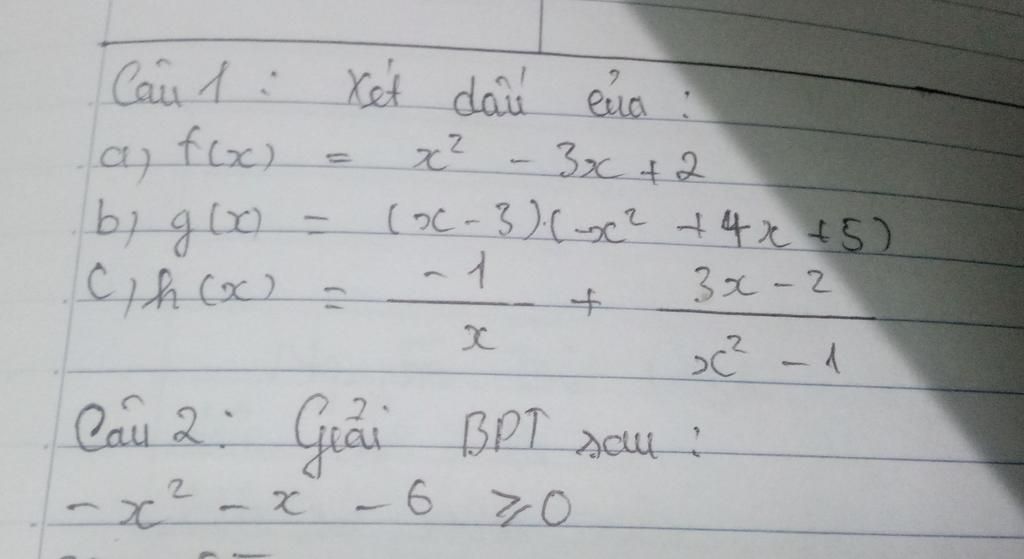 Câu 1 : Xét dấu của :
a, f(x) = x² - 3x + 2
b, g(x) = (x - 3).(-x² + 4x + 5)
c, h(x) = -1/x + (3x - 2)/(x² - 1)
Câu 2 : Giải BPT sau :
-x² - x - 6 ≥ 0